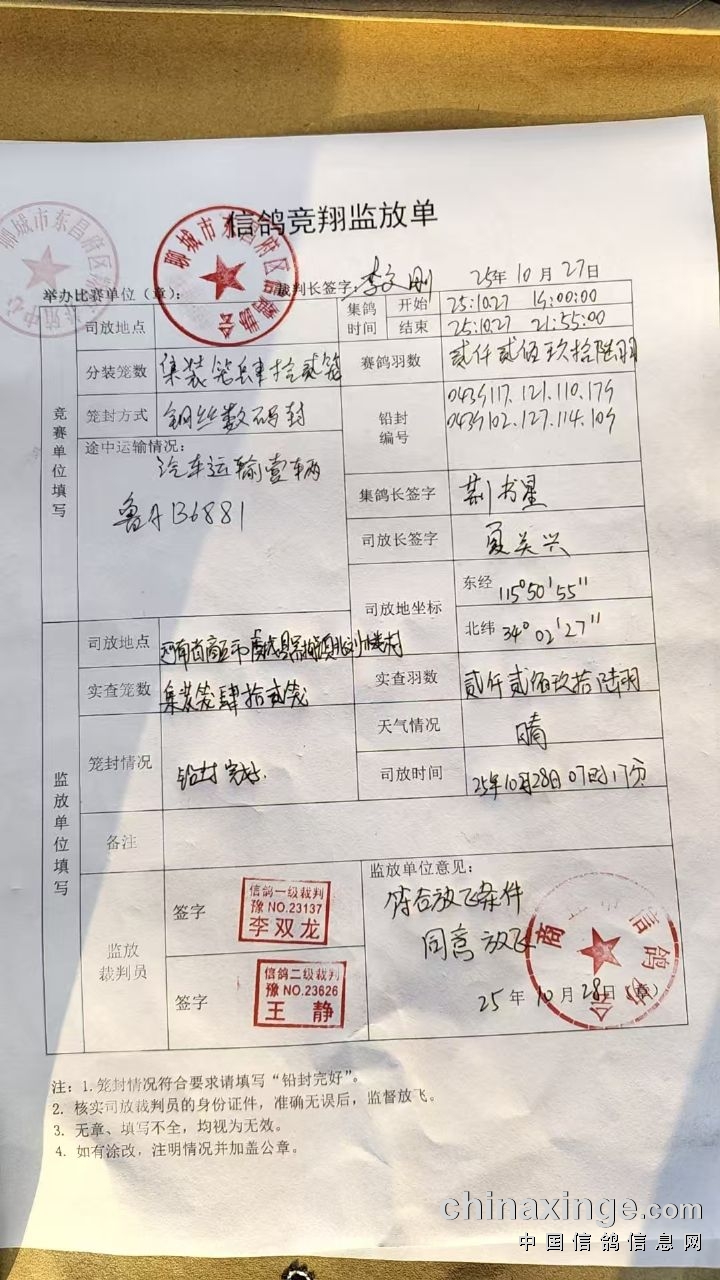 信鸽竞翔监放单
聊城市东昌府区信鸽协会
举办比赛单位（章）：
裁判长签字：李文刚 25年10月27日
竞赛单位填写
司放地点
集鸽时间 开始 25:10:27 14:00:00
结束 25:10:27 21:55:00
分装笼数 集装笼肆拾贰笼
赛鸽羽数 贰仟贰佰玖拾陆羽
笼封方式 钢丝数码封
铅封编号
途中运输情况：
汽车运输壹辆
集鸽长签字 荆书星
司放长签字 夏关兴
司放地坐标 东经 115°50'55"
北纬 34°02'27"
监放单位填写
司放地点
实查笼数 集装笼肆拾贰笼
实查羽数 贰仟贰佰玖拾陆羽
笼封情况 铅封完好.
天气情况 晴
司放时间 25年10月28日07时17分
备注
监放裁判员
签字
信鸽一级裁判
豫NO.23137
李双龙
签字
信鸽二级裁判
豫NO.23626
王静
监放单位意见：
符合放飞条件
同意放飞
25年10月28日（章）
注：1.笼封情况符合要求请填写“铅封完好”。
2. 核实司放裁判员的身份证件，准确无误后，监督放飞。
3. 无章、填写不全，均视为无效。
4. 如有涂改，注明情况并加盖公章。
chinaxinge.com
中国信鸽信息网